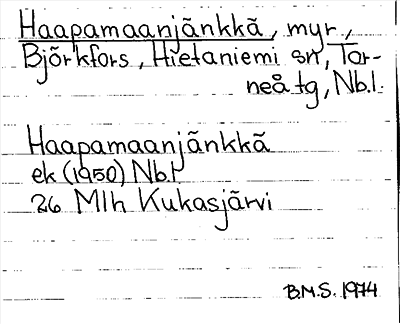 Haapamaanjänkkä, myr,
Björkfors, Hietaniemi sn, Tor-
neå tg, Nb.l.
Haapamaanjänkkä
ek (1950) Nb.l
26 Mlh Kukasjärvi
B.M.S. 1974